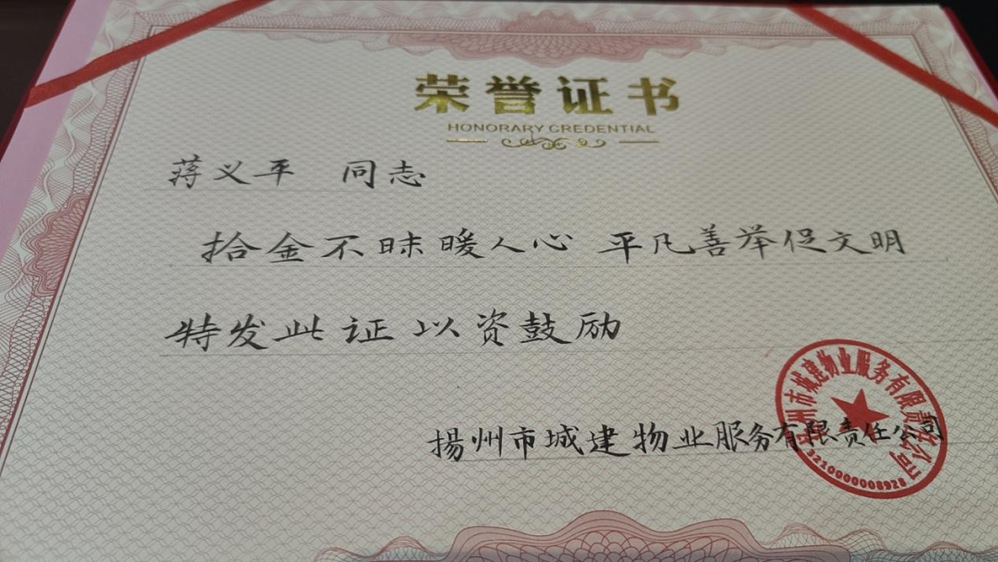 荣誉证书
HONORARY CREDENTIAL
蒋义平 同志
拾金不昧暖人心 平凡善举促文明
特发此证 以资鼓励
揚州市城建物业服务有限责任公司
扬州市城建物业服务有限责任公司
3210000008928